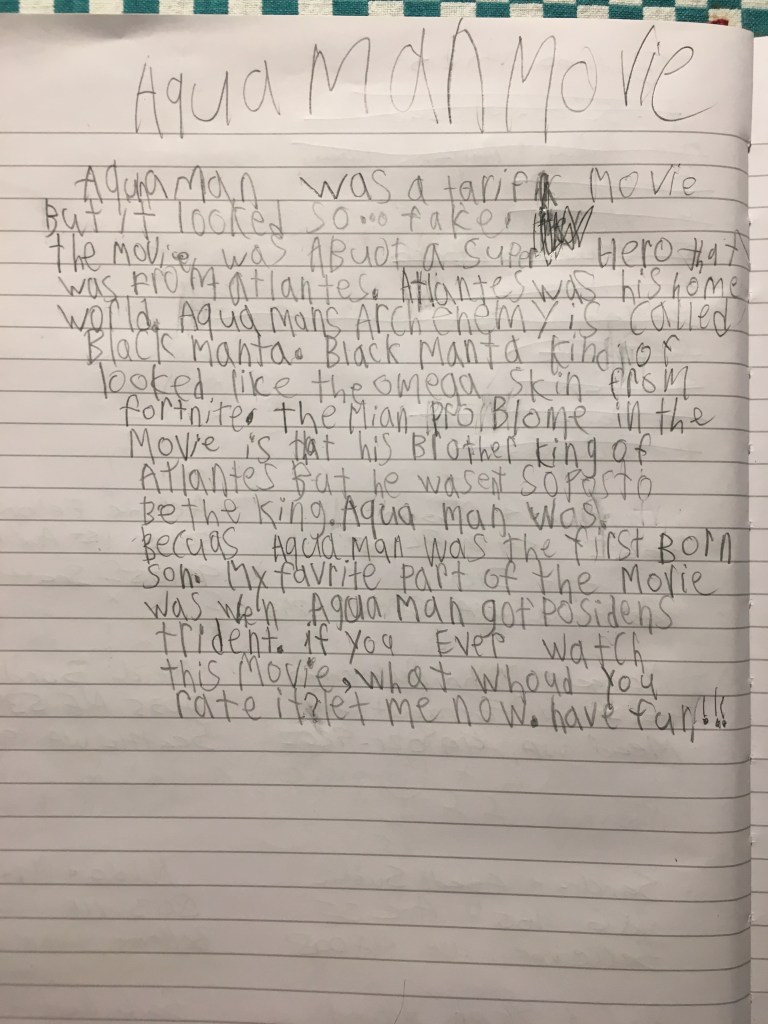 Aqua Man Movie
Aquaman was a tarifik Movie
But it looked so... fake.
the Movie, was ABuot a super Hero that
was FroM atlantes. Atlantes was his home
world. Aqua mans Arch enemy is called
Black manta. Black Manta kind or
looked like the omega skin from
fortnite. the Mian proBlome in the
Movie is that his Brother king of
Atlantes But he wasent soposto
Be the king. Aqua man was.
Becuas Aqua Man was the first Born
son. My favrite part of the Movie
was wen Aqua Man got Posidens
trident. if you Ever watch
this Movie, what whoud you
rate it? let me now. have fun!!!